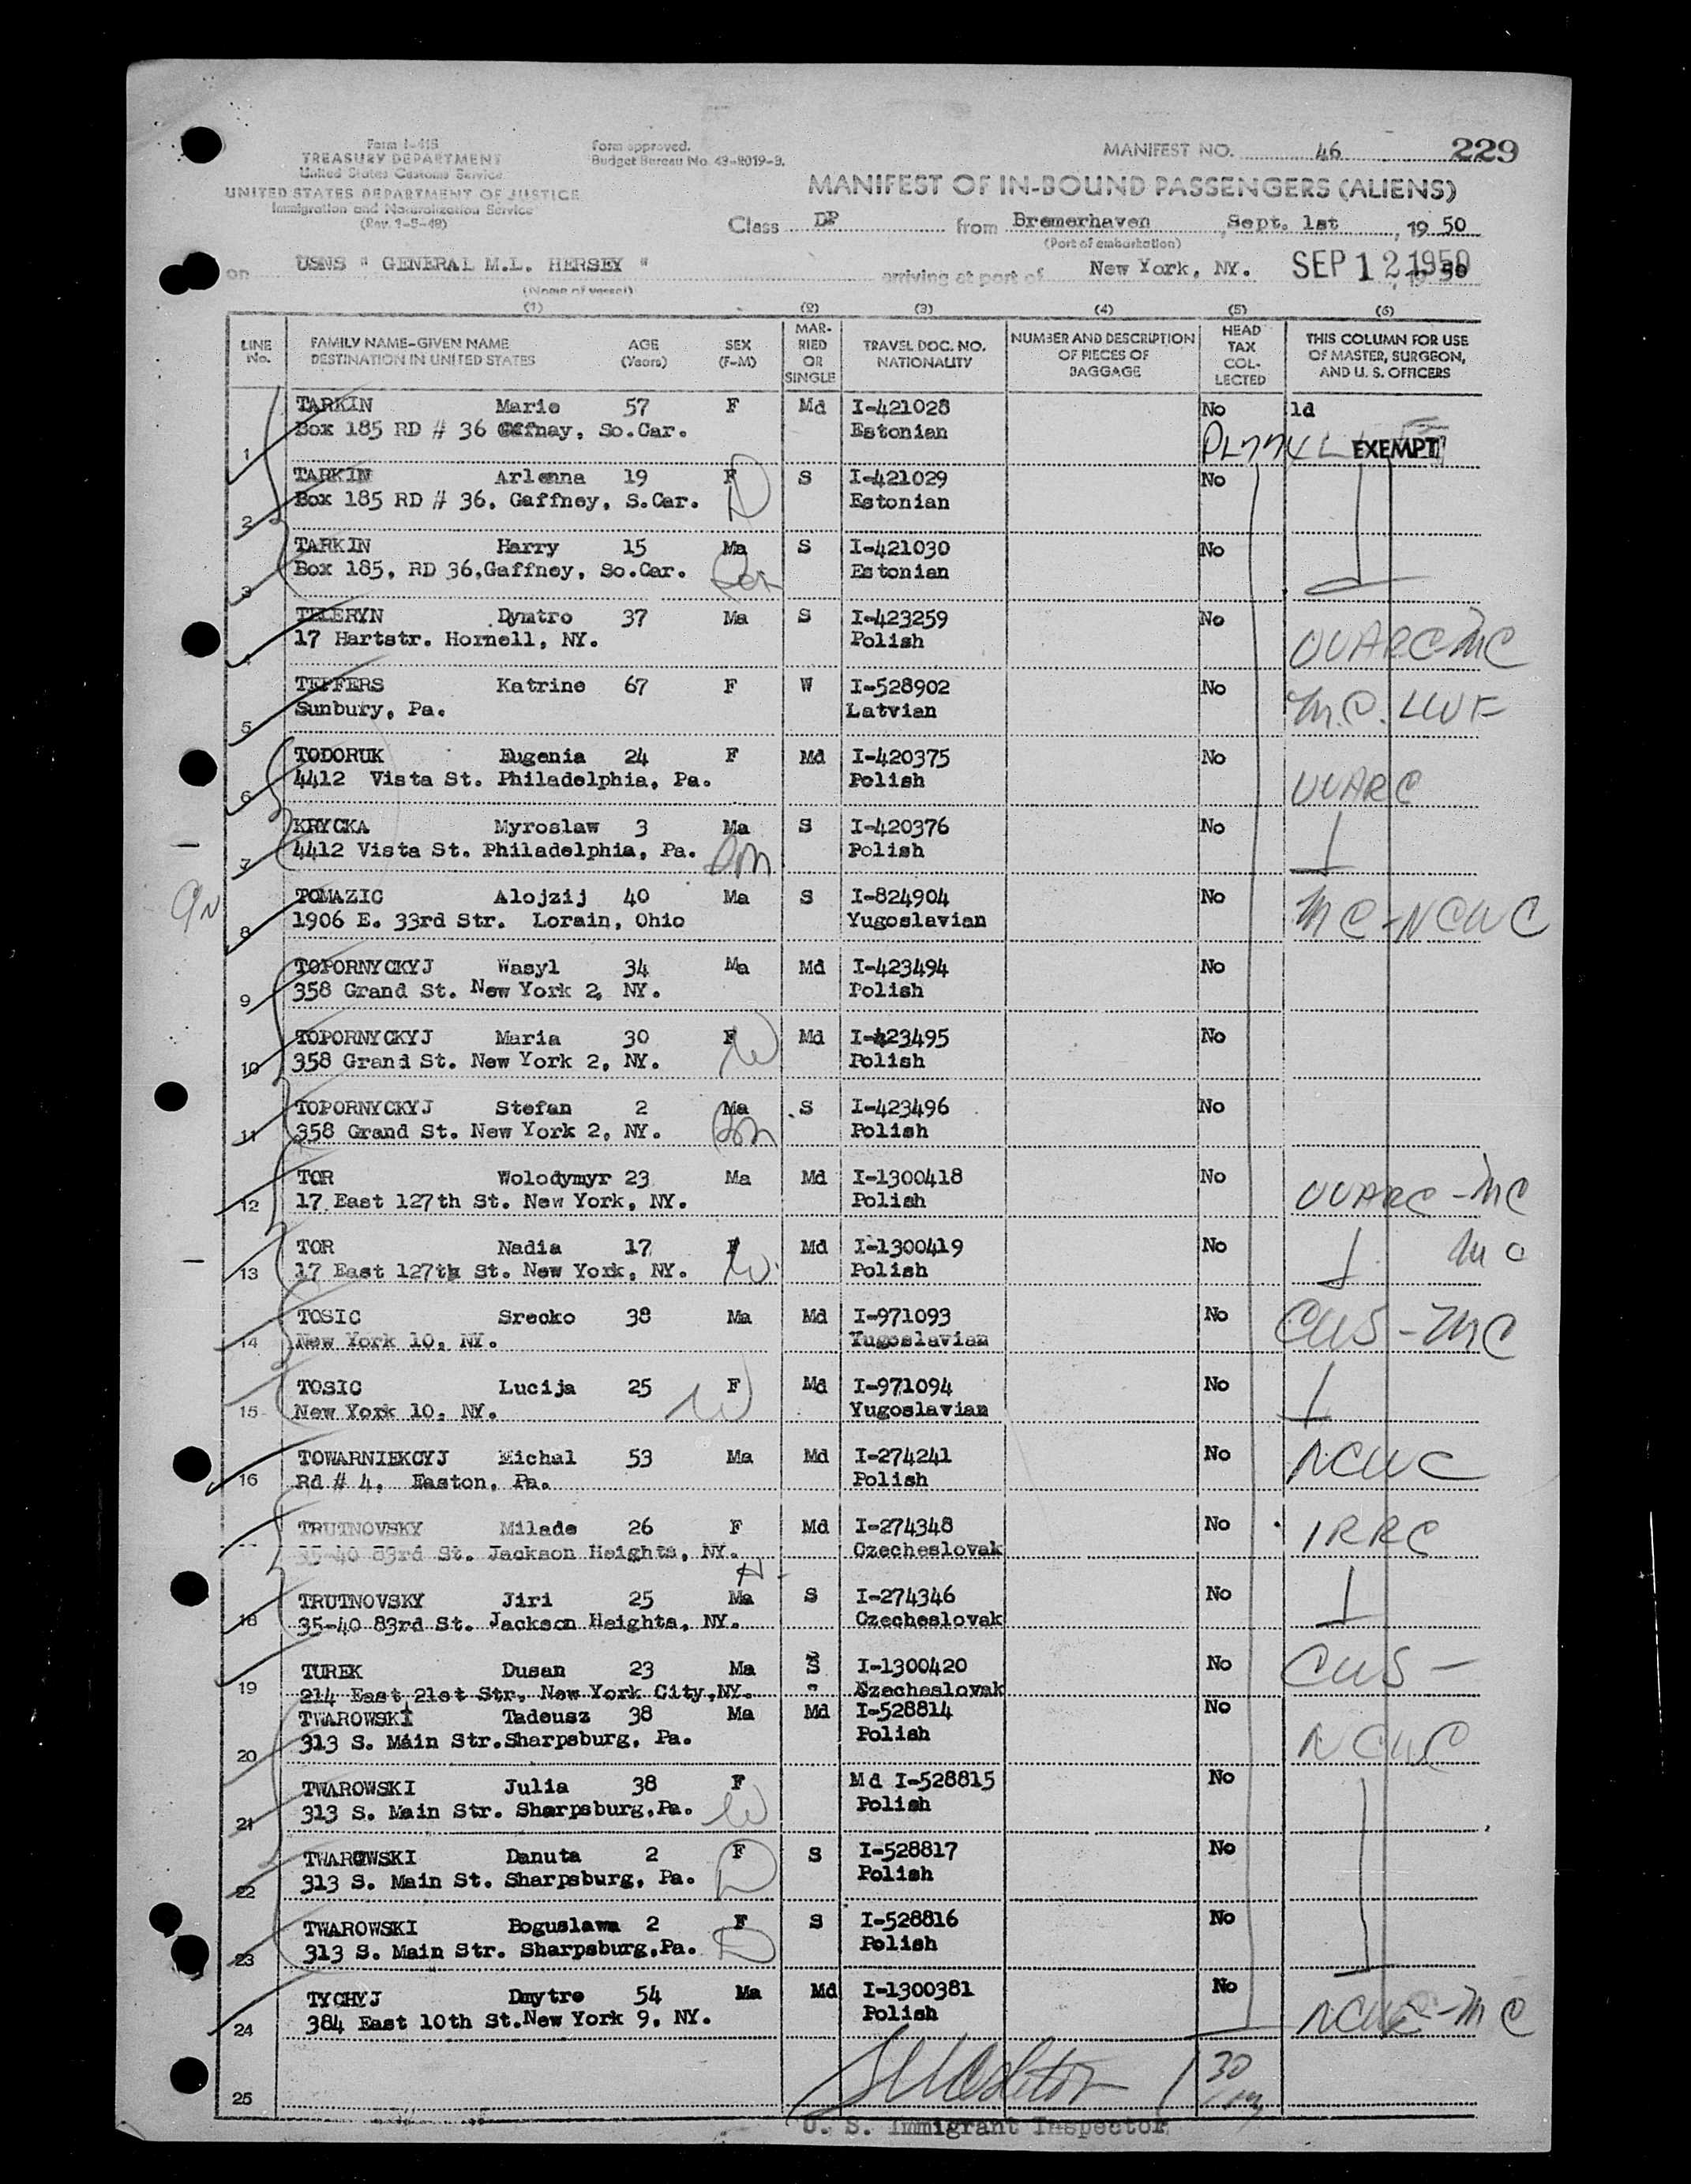 Form I-415
TREASURY DEPARTMENT
United States Customs Service
UNITED STATES DEPARTMENT OF JUSTICE
Immigration and Naturalization Service
(Rev. 1-5-49)
form approved.
Budget Bureau No. 43-R019-3.
MANIFEST NO. 46 229
MANIFEST OF IN-BOUND PASSENGERS (ALIENS)
Class DP from Bremerhaven, Sept. 1st, 19 50
(Port of embarkation)
on USNS " GENERAL M.L. HERSEY " arriving at port of New York, NY. SEP 12 1950
(Name of vessel)
(1) (2) (3) (4) (5) (6)
LINE No. FAMILY NAME-GIVEN NAME DESTINATION IN UNITED STATES AGE (Years) SEX (F-M) MARRIED OR SINGLE TRAVEL DOC. NO. NATIONALITY NUMBER AND DESCRIPTION OF PIECES OF BAGGAGE HEAD TAX COLLECTED THIS COLUMN FOR USE OF MASTER, SURGEON, AND U. S. OFFICERS
TARKIN Marie 57 F Md I-421028 No 1d
1 Box 185 RD # 36 Gffnay, So.Car. Estonian EXEMPT
TARKIN Arlenna 19 F S I-421029 No
2 Box 185 RD # 36, Gaffney, S.Car. D Estonian
TARKIN Harry 15 Ma S I-421030 No
3 Box 185, RD 36,Gaffney, So.Car. Son Estonian
TELERYN Dymtro 37 Ma S I-423259 No
4 17 Hartstr. Hornell, NY. Polish UUARC-MC
TEFFERS Katrine 67 F W I-528902 No
5 Sunbury, Pa. Latvian M.C. LWF
TODORUK Eugenia 24 F Md I-420375 No
6 4412 Vista St. Philadelphia, Pa. Polish UUARC
KRYCKA Myroslaw 3 Ma S I-420376 No
7 4412 Vista St. Philadelphia, Pa. Son Polish
TOMAZIC Alojzij 40 Ma S I-824904 No
8 1906 E. 33rd Str. Lorain, Ohio Yugoslavian MC-NCWC
TOPORNYCKYJ Wasyl 34 Ma Md I-423494 No
9 358 Grand St. New York 2, NY. Polish
TOPORNYCKYJ Maria 30 F Md I-423495 No
10 358 Grand St. New York 2, NY. W Polish
TOPORNYCKYJ Stefan 2 Ma S I-423496 No
11 358 Grand St. New York 2, NY. Son Polish
TOR Wolodymyr 23 Ma Md I-1300418 No
12 17 East 127th St. New York, NY. Polish UUARC-MC
TOR Nadia 17 F Md I-1300419 No
13 17 East 127th St. New York, NY. W Polish MC
TOSIC Srecko 38 Ma Md I-971093 No
14 New York 10, NY. Yugoslavian CWS-MC
TOSIC Lucija 25 F Md I-971094 No
15 New York 10, NY. W Yugoslavian
TOWARNIEKCYJ Michal 53 Ma Md I-274241 No
16 Rd # 4, Easton, Pa. Polish NCWC
TRUTNOVSKY Milade 26 F Md I-274348 No
35-40 83rd St. Jackson Heights, NY. Czecheslovak IRRC
TRUTNOVSKY Jiri 25 Ma S I-274346 No
18 35-40 83rd St. Jackson Heights, NY. Czecheslovak
TUREK Dusan 23 Ma S I-1300420 No
19 214 East 21st Str, New York City,NY. Czecheslovak CWS -
TWAROWSKI Tadeusz 38 Ma Md I-528814 No
20 313 S. Main Str.Sharpsburg, Pa. Polish NCWC
TWAROWSKI Julia 38 F Md I-528815 No
21 313 S. Main Str. Sharpsburg,Pa. W Polish
TWAROWSKI Danuta 2 F S I-528817 No
22 313 S. Main St. Sharpsburg, Pa. D Polish
TWAROWSKI Boguslawa 2 F S I-528816 No
23 313 S. Main Str. Sharpsburg,Pa. D Polish
TYCHYJ Dmytro 54 Ma Md I-1300381 No
24 384 East 10th St.New York 9, NY. Polish NCWC-MC
25
U. S. Immigrant Inspector